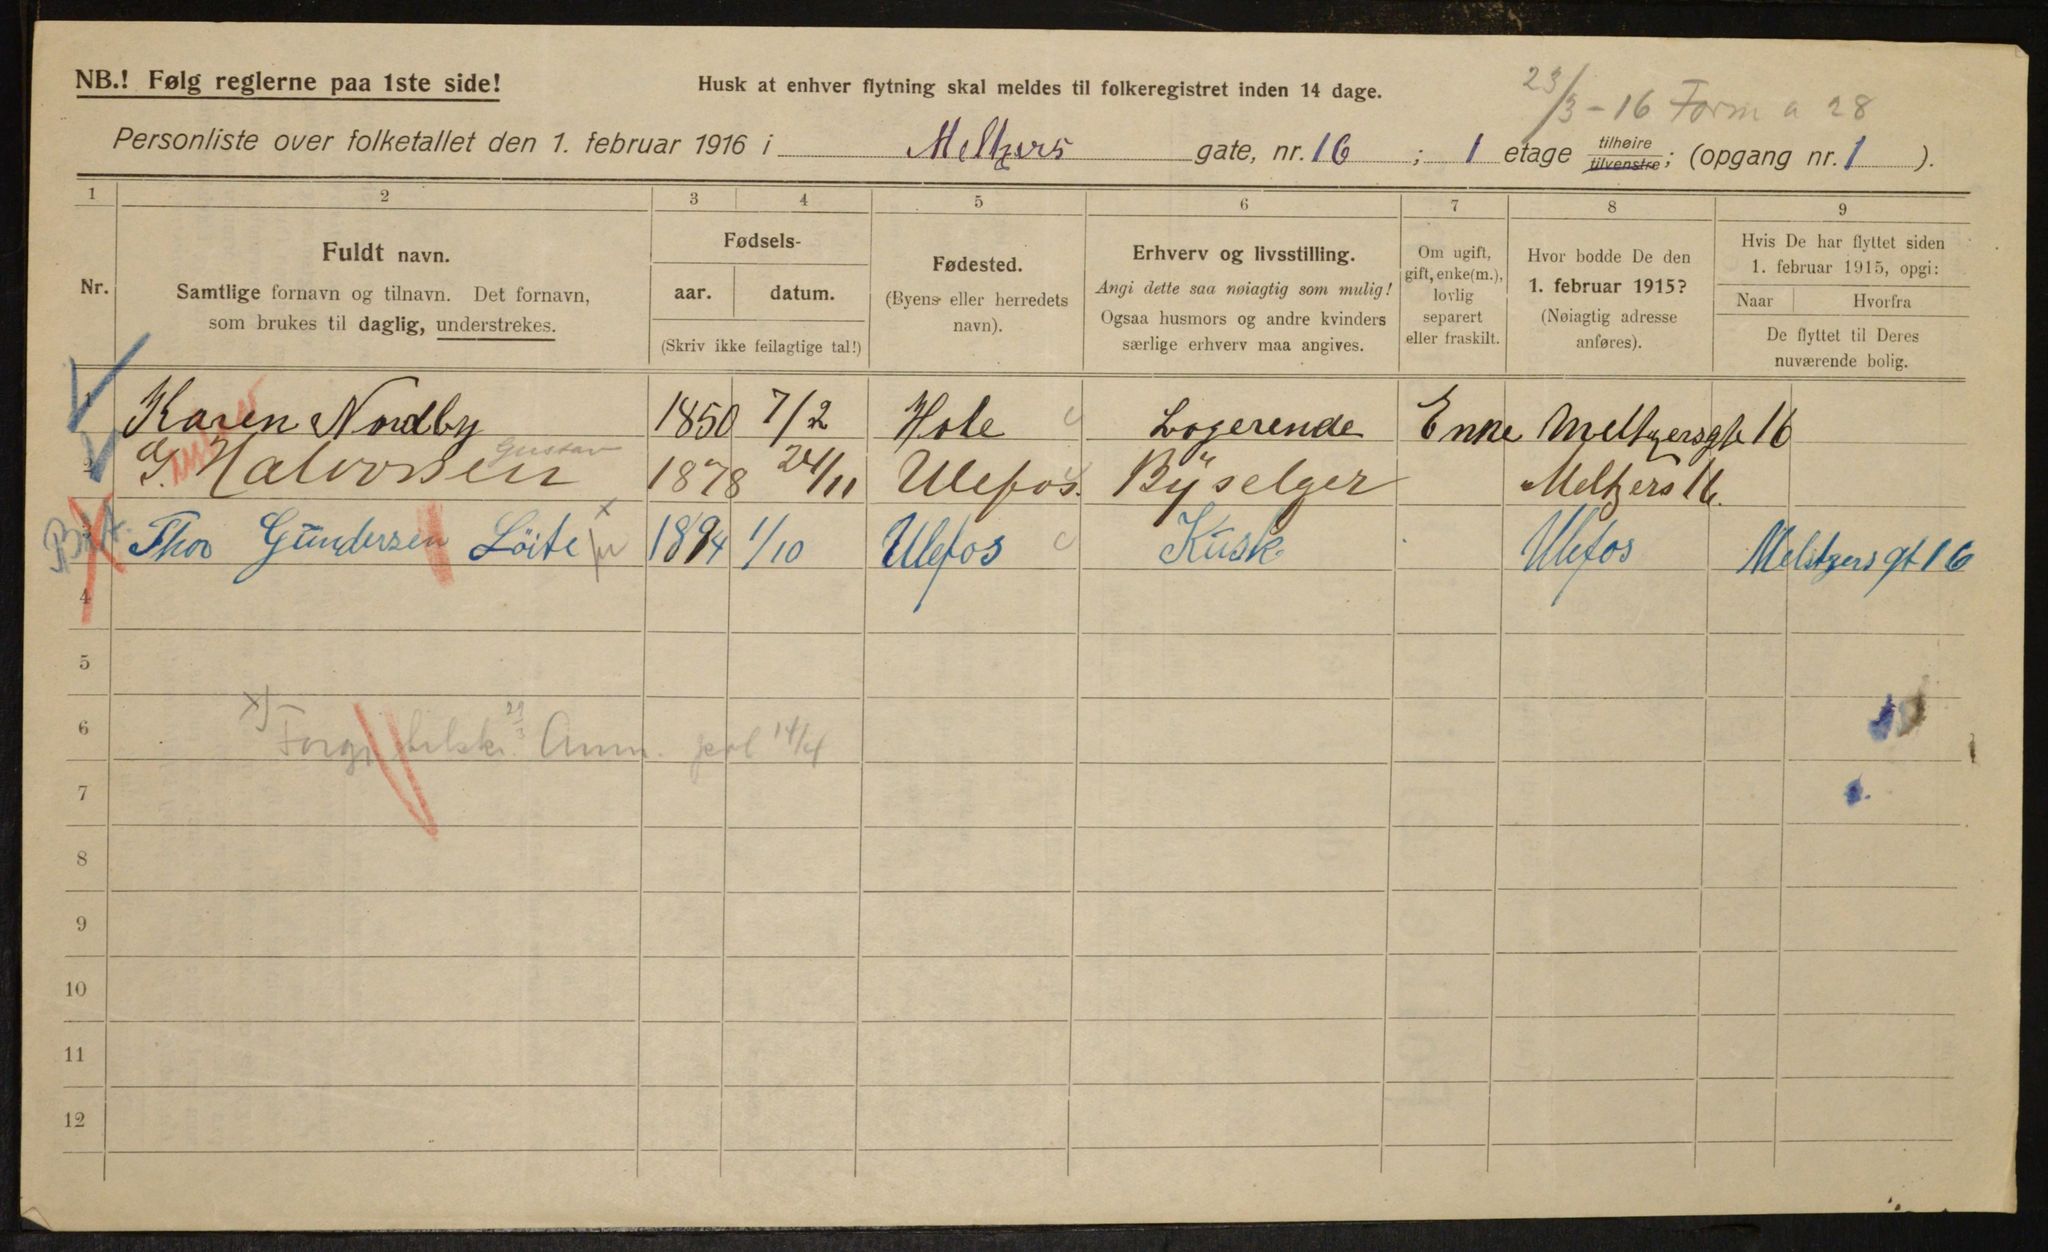 NB.! Følg reglerne paa 1ste side!
Husk at enhver flytning skal meldes til folkeregistret inden 14 dage.
23/3-16 Form a 28
Personliste over folketallet den 1. februar 1916 i Meltzers gate, nr. 16 ; 1 etage tilhøire tilvenstre; (opgang nr. 1 ).
1 2 3 4 5 6 7 8 9
Nr.
Fuldt navn.
Samtlige fornavn og tilnavn. Det fornavn,
som brukes til daglig, understrekes.
Fødsels-
aar. datum.
(Skriv ikke feilagtige tal!)
Fødested.
(Byens eller herredets
navn).
Erhverv og livsstilling.
Angi dette saa nøiagtig som mulig!
Ogsaa husmors og andre kvinders
særlige erhverv maa angives.
Om ugift,
gift, enke(m.),
lovlig
separert
eller fraskilt.
Hvor bodde De den
1. februar 1915?
(Nøiagtig adresse
anføres).
Hvis De har flyttet siden
1. februar 1915, opgi:
Naar Hvorfra
De flyttet til Deres
nuværende bolig.
1 Karen Nordby 1850 7/2 Hole Logerende Enke Meltzersgte 16
Gustav
2 G. Halvorsen 1878 24/11 Ulefos. Byselger Meltzers 16.
3 Thor Gundersen Löite x 1894 1/10 Ulefos Kusk Ulefos Meltzers gt 16
4
5
6 x) tilskr. 29/3 Anm. 14/4
7
8
9
10
11
12